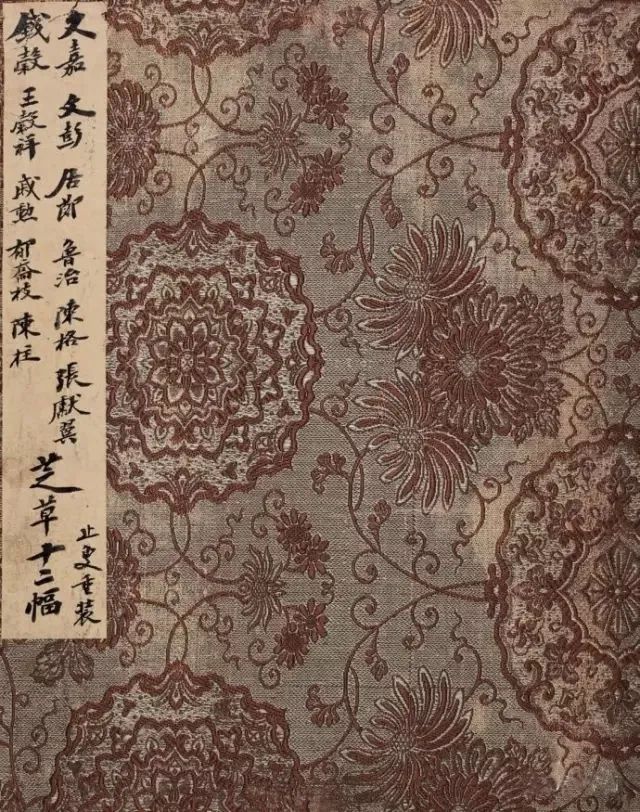 文嘉 文彭 居節 魯治 陳栝 張獻翼
錢穀 王穀祥 戚勳 郁喬枝 陳柱
芝草十二幅
止叟重装